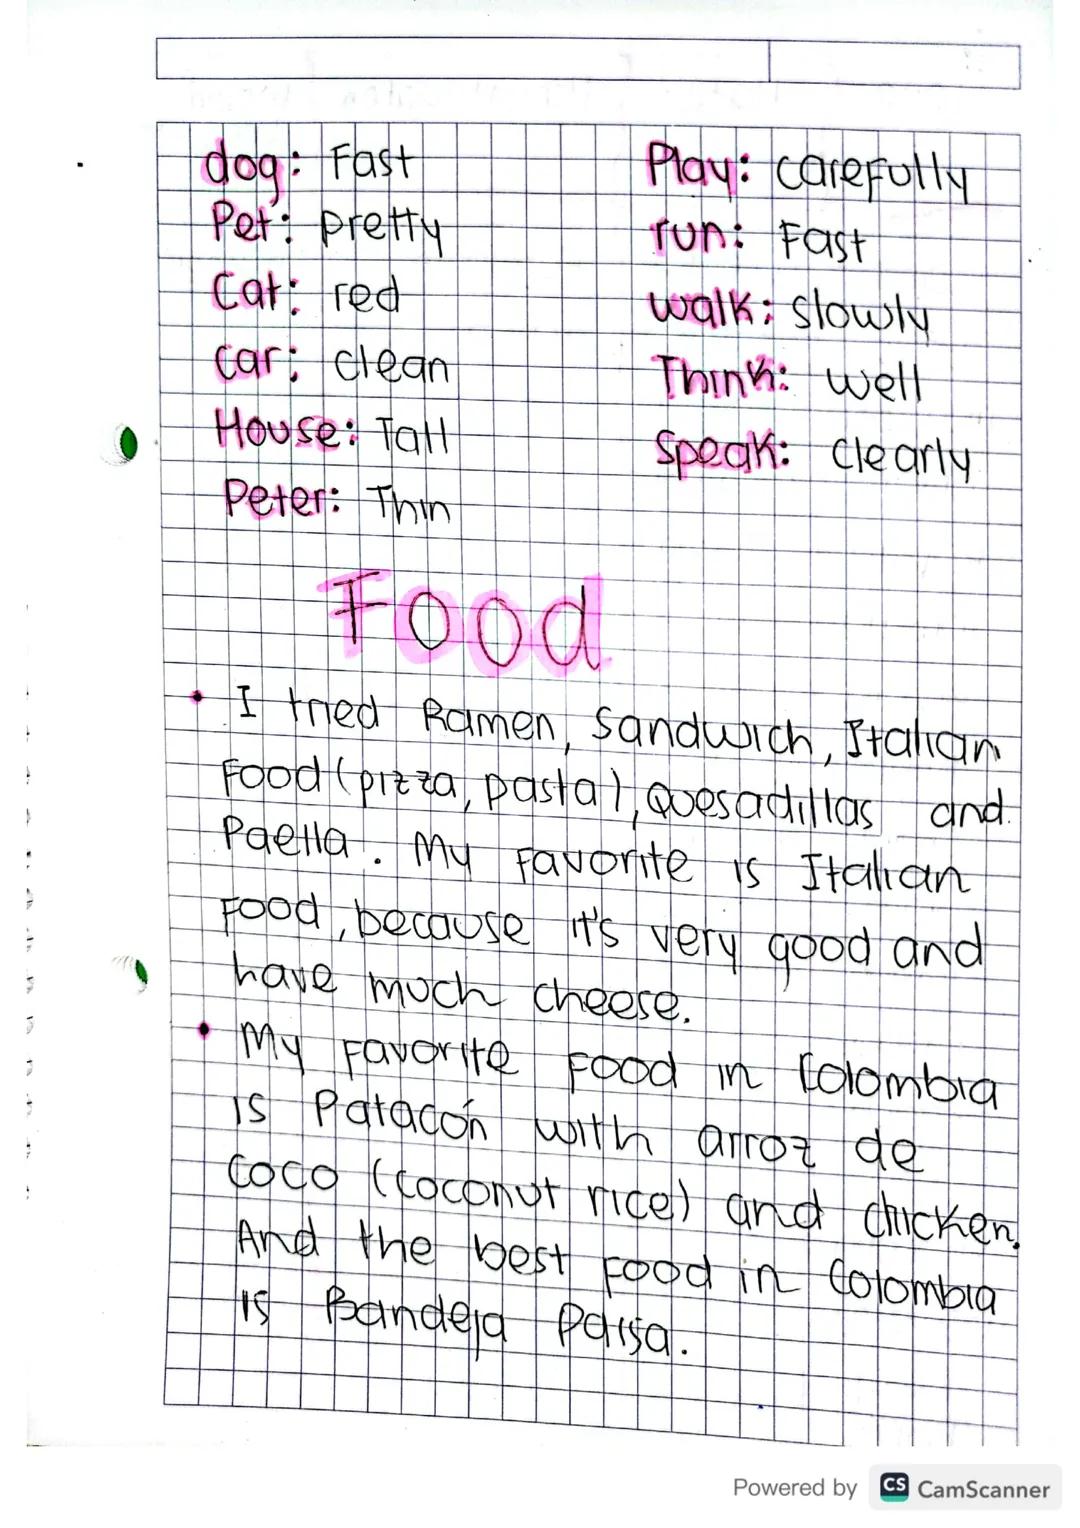 dog: Fast
Pet: pretty
Cat: red
car: clean
House: Tall
Peter: Thin
Play: carefully
run: Fast
walk: slowly
Think: well
Speak: clearly
Food
• I tried Ramen, Sandwich, Italian
Food (pizza, pasta), Quesadillas and
Paella. My Favorite is Italian
Food, because it's very good and
have much cheese.
• My Favorite Food in Colombia
is Patacón with arroz de
coco (coconut rice) and chicken.
And the best Food in Colombia
is Bandeja Paisa.
Powered by CS CamScanner